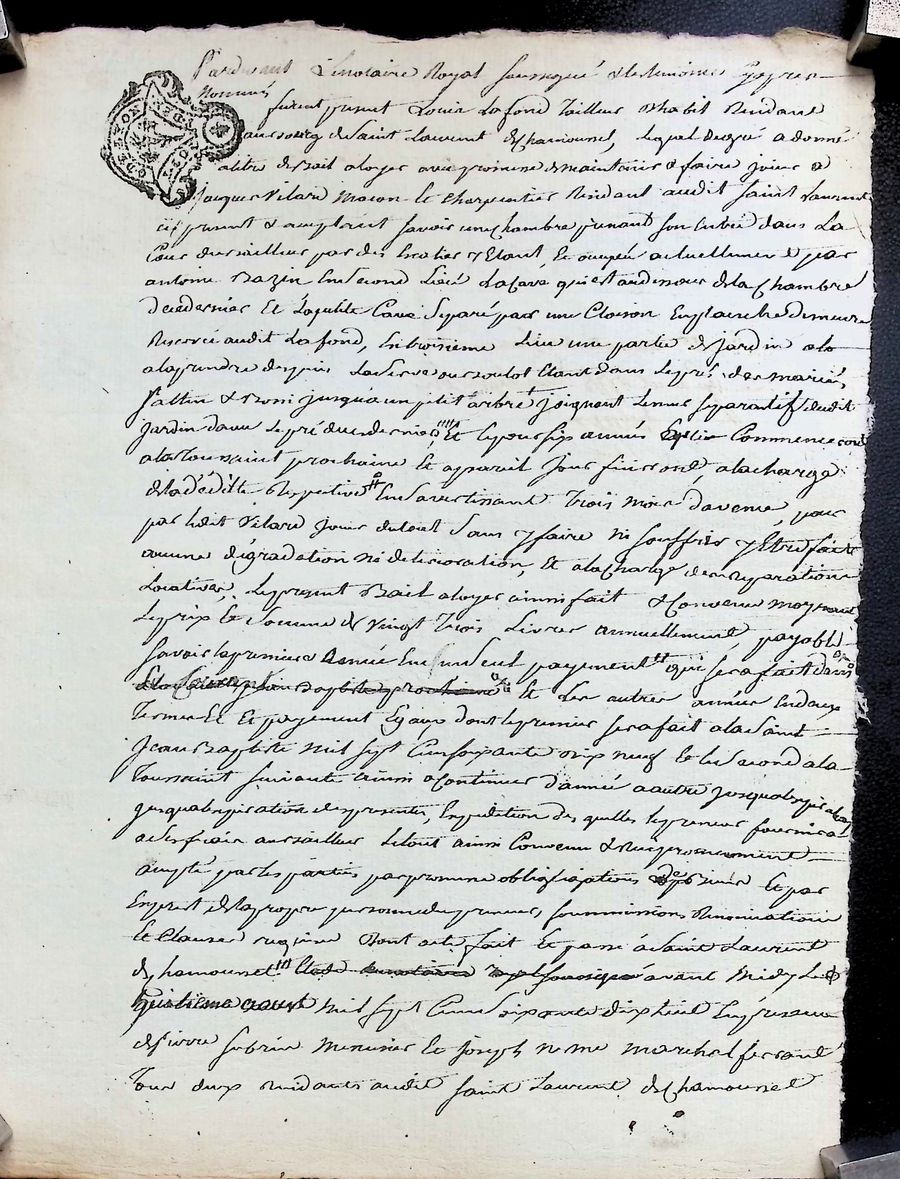 Pardevant Le notaire Royal soussigné & les temoins Cy apres
Nommés
furent present Louis Lafond Tailleur d'habit Residant
au bourg de Saint Laurent de Chamousset, lequel de gré a donné
a titre de Bail a loyer avec promesse de maintenir & faire jouir a
Jacques Vilard Macon et Charpentier Residant audit Saint Laurent
icy present & acceptant savoir une Chambre prenant son Entrée dans La
Cour du bailleur par des Escaliers y Etant, Et occupée actuellement par
antoine Bazin En second Lieu La Cave qui est au dessous de la Chambre
de ce dernier Et La petite Cave Separé par une Cloison En planche demeure
Reservée audit Lafond, En troisieme Lieu une partie de jardin a la
a la prendre depuis La Serve ou Etant dans le pré des mariés
& jusqua un petit arbre joignant le mur separatif dudit
jardin davec le pré du dernier Et ce pour six années Commenceront
a la toussaint prochaine Et a pareil jour finiront, a la charge
de la dédite Respective En s'avertissant Trois mois d'avance, pour
par ledit Vilard jouir du tout Sans y faire ni souffrir y Etre fait
aucune dégradation Ni déterioration, Et a la charge des reparations
Locatives, Le present Bail a loyer ainsi fait & Convenu moyennant
Le prix Et Somme de Vingt Trois Livres annuellement, payable
Savoir la premiere année En un seul payement qui sera fait dans
Et les autres années En deux
Termes Et Et payement Egaux, dont le premier sera fait a la Saint
Jean Baptiste mil sept Cent soixante dix neuf Et le second a la
Toussaint suivante ainsi a Continuer d'année a autre jusqua
jusqua des presentes, Expedition des quelles le preneur fournira
a ses frais au bailleur Le tout ainsi Convenu & reciproquement
accepté par les parties par promesse obligations Et par
Exprest de la propre personne du preneur, soummissions Renonciations
Et Clauses requises Dont acte fait Et passé a Saint Laurent
de Chamousset avant Midy Le
huitieme aout Mil sept Cent Soixante dix huit En presence
de pierre Menuisier Et Joseph Marechal ferrant
Tous deux residants audit Saint Laurent de Chamousset